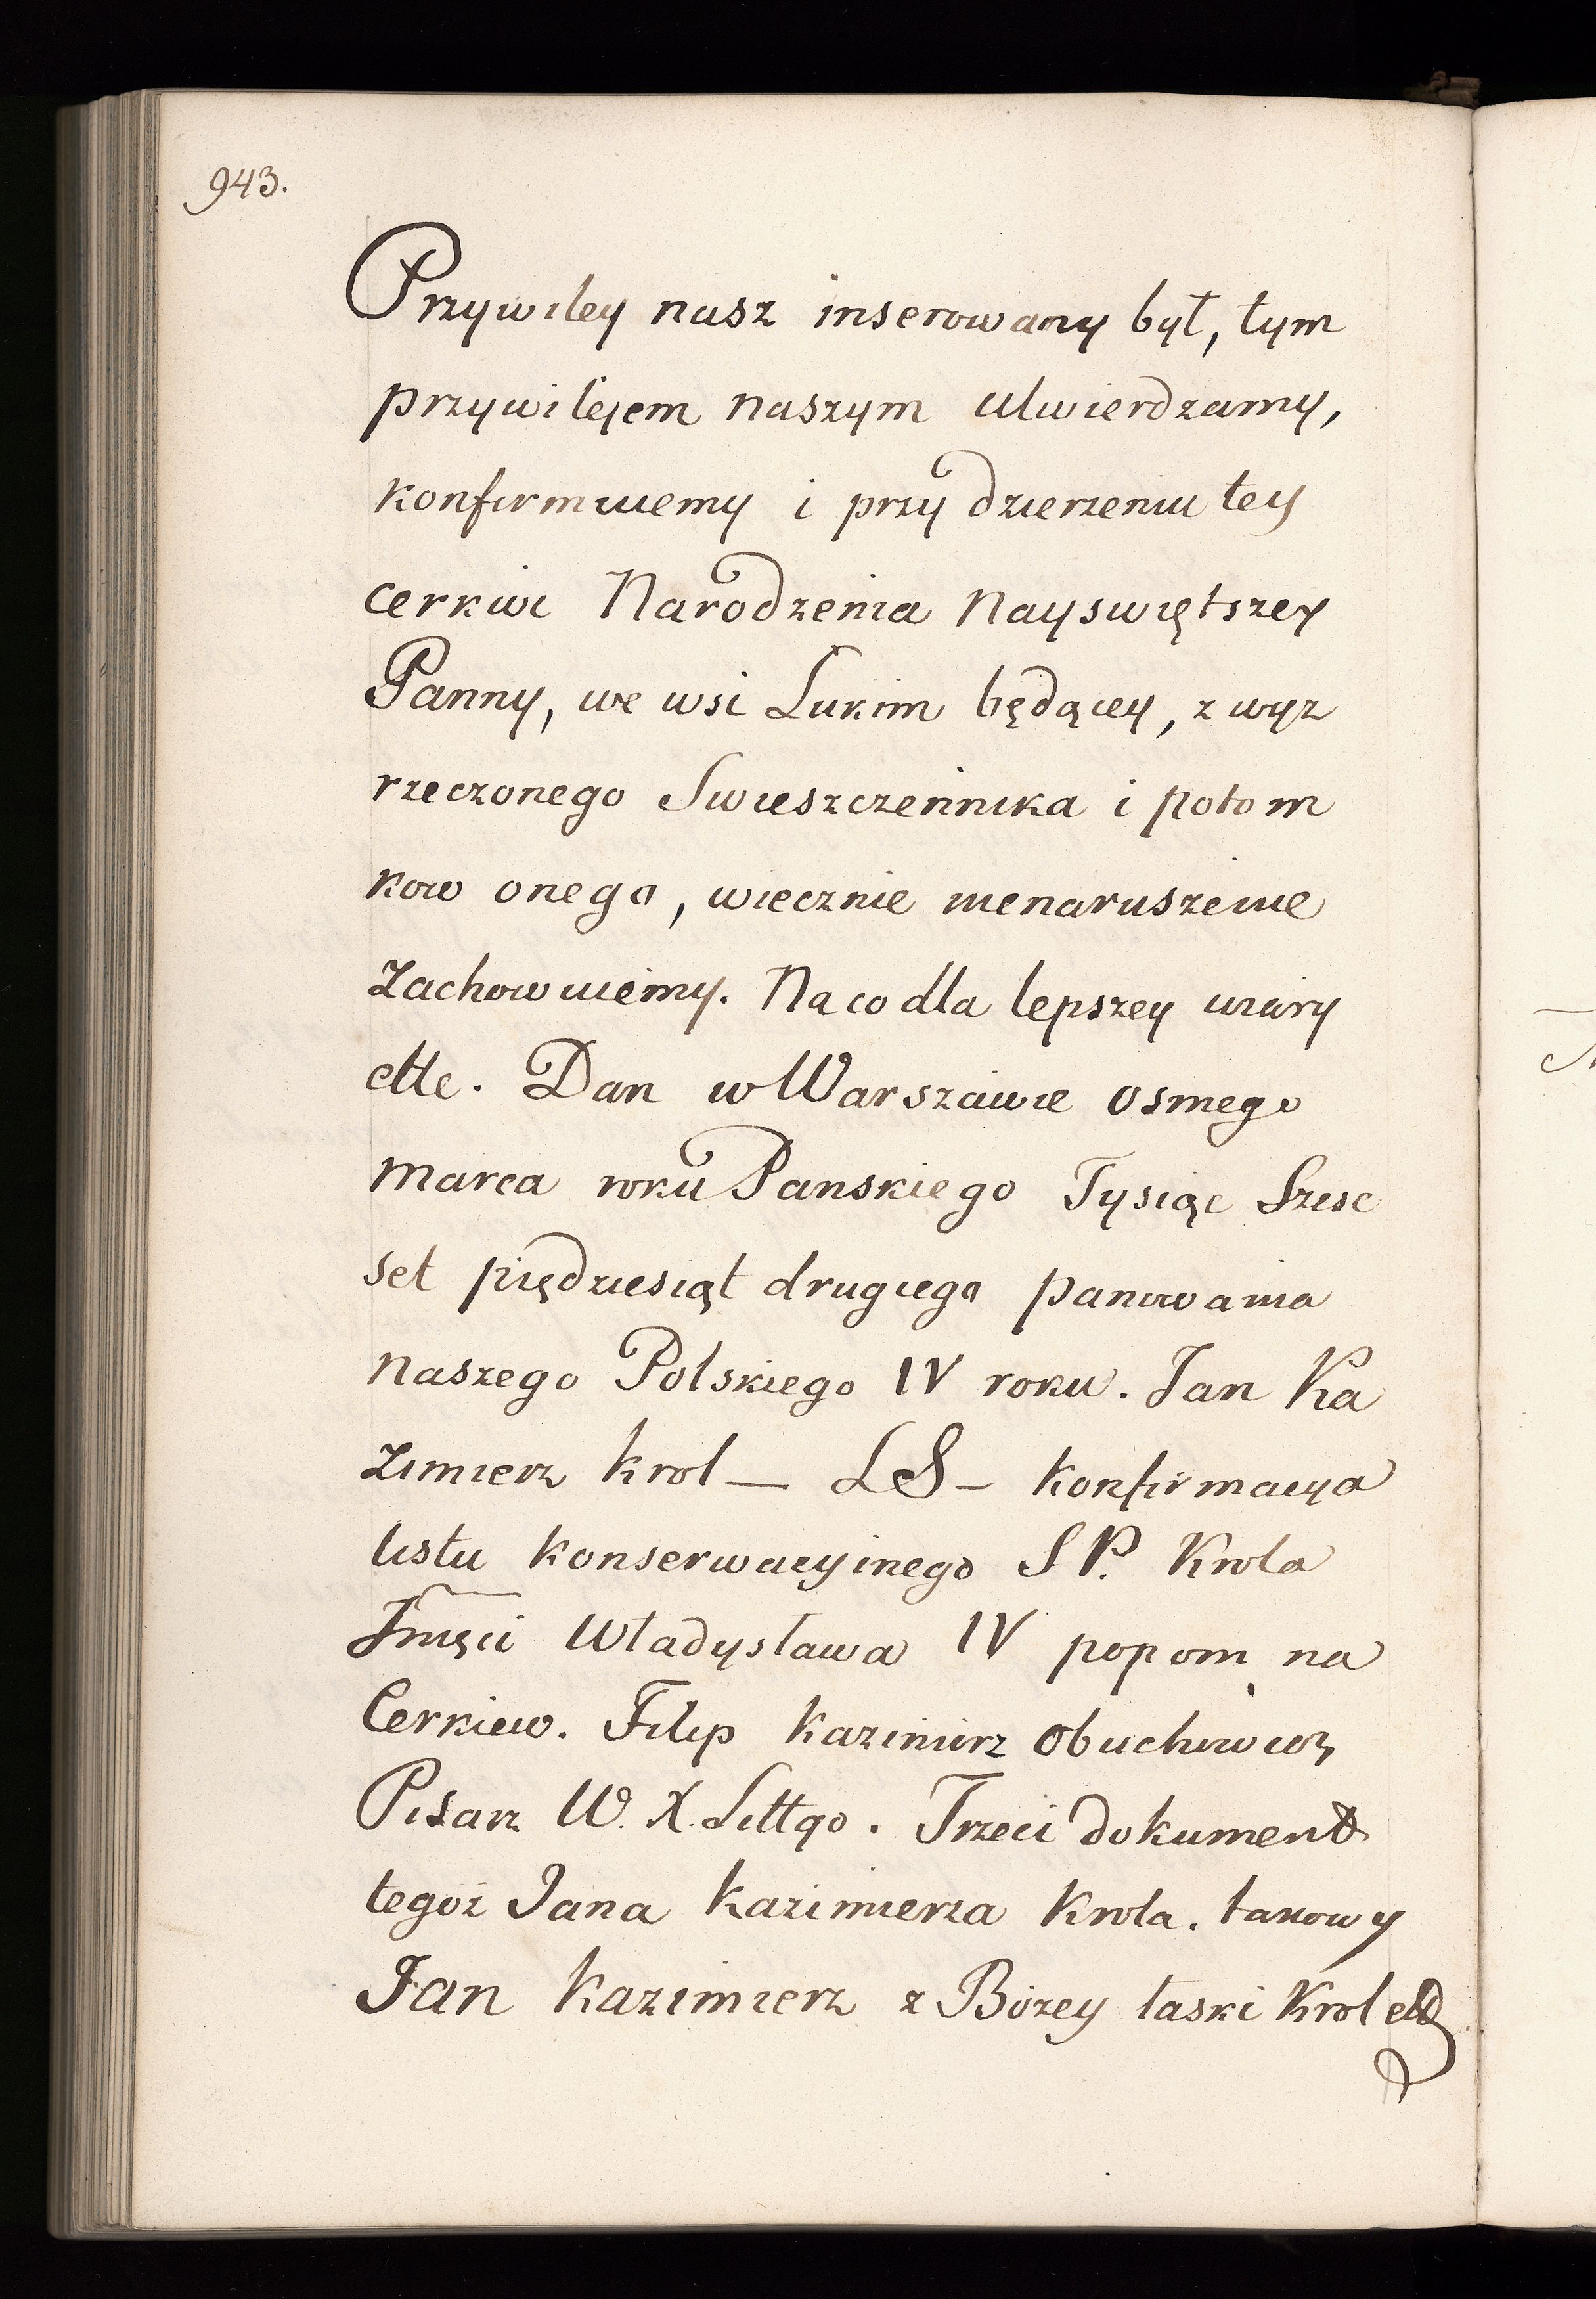 943.
Przywiley nasz inserowany był, tym
przywilejem naszym utwierdzamy,
konfirmuiemy i przy dzierzeniu tey
cerkwi Narodzenia Nayswiętszey
Panny, we wsi Lukim będącey, zwyz
rzeczonego Swieszczennika i potom
kow onego, wiecznie nienaruszenie
Zachowuiemy. Na co dla lepszey wiary
ette. Dan w Warszawie osmego
marca roku Panskiego Tysiąc Szesc
set piędziesiąt drugiego panowania
naszego Polskiego IV roku. Jan Ka
zimierz krol — LS — konfirmacya
listu konserwacyinego SP. Krola
Jmęci Władysława IV popom na
Cerkiew. Filip Kazimirz Obuchowicz
Pisarz W. X. Littgo. Trzeci dokument
tegoż Jana Kazimierza Krola. takowy
Jan Kazimierz z Bożey łaski Krol